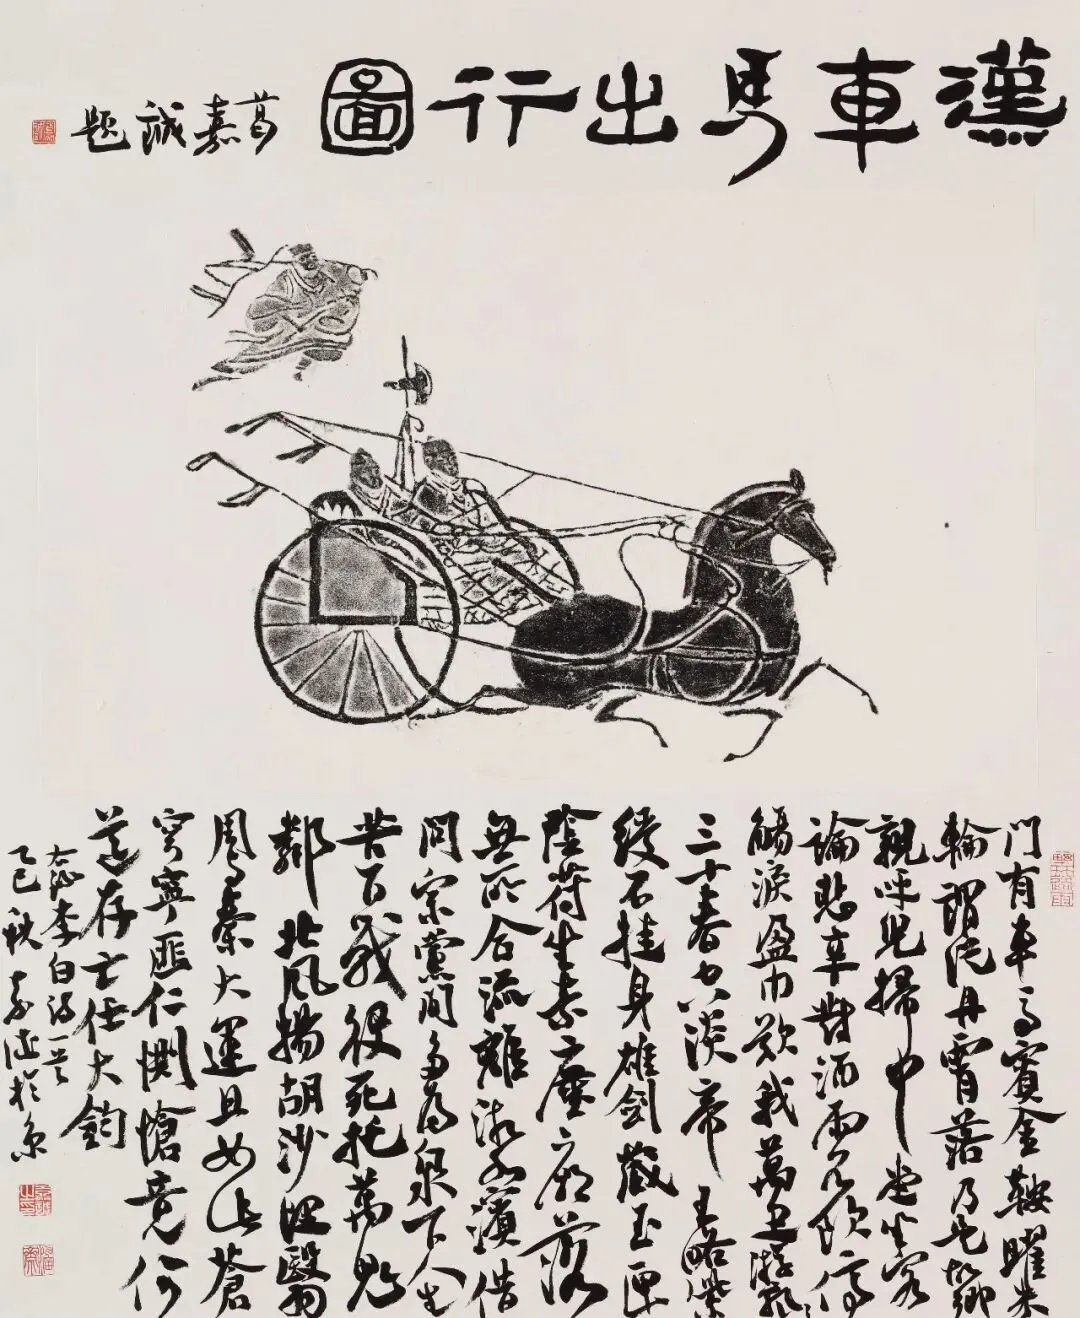 漢車馬出行圖
葛嘉誠題
門有車馬賓金鞍曜朱
輪謂從丹霄落乃是故鄉
親呼兒掃中堂坐客
論悲辛對酒兩不飲停
觴淚盈巾歎我萬里遊飄
三十春空談帝王略紫
綬不挂身雄劍藏玉匣
陰符生素塵廓落
無所合流離湘水濱借
問宗黨間多為泉下人生
苦百戰役死托萬鬼
鄰北風揚胡沙埋翳
周与秦大運且如此蒼
穹寧匪仁惻愴竟何
道存亡任大鈞
右錄李白詩一首
乙巳秋嘉誠於京